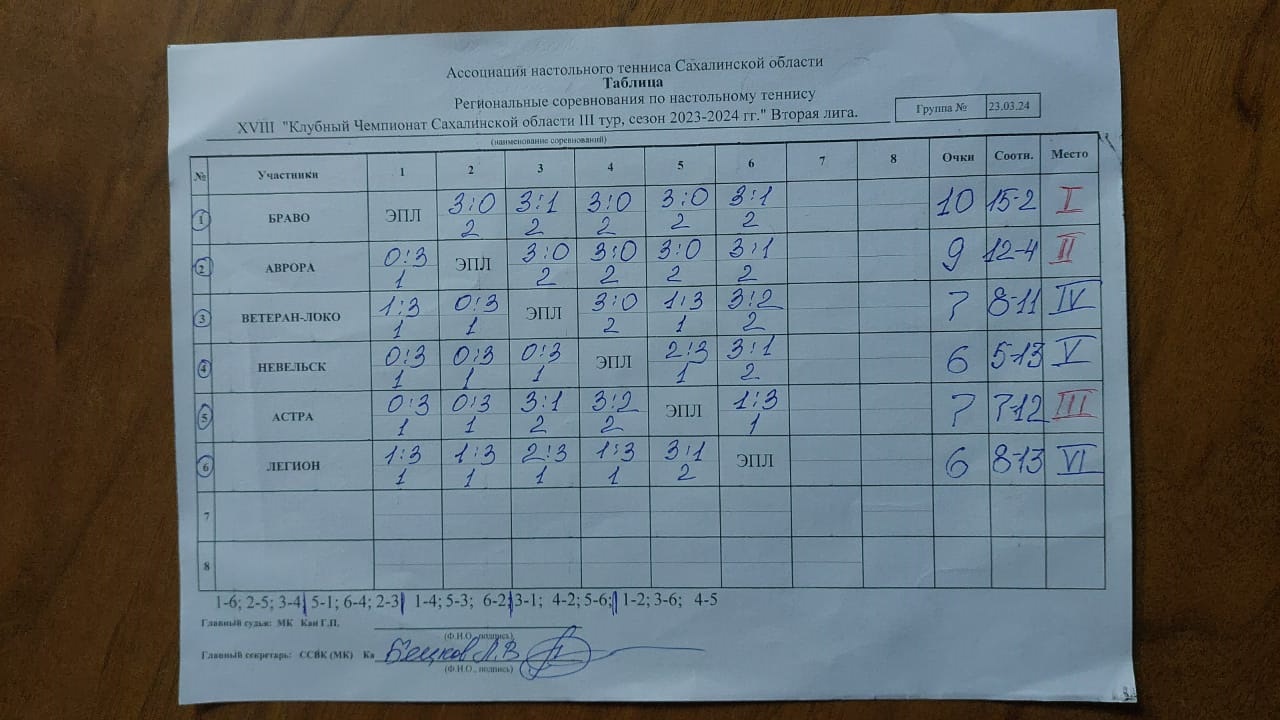 Ассоциация настольного тенниса Сахалинской области
Таблица
Региональные соревнования по настольному теннису
Группа № 23.03.24
XVIII "Клубный Чемпионат Сахалинской области III тур, сезон 2023-2024 гг." Вторая лига.
(наименование соревнований)
№ Участники 1 2 3 4 5 6 7 8 Очки Соотн. Место
1 БРАВО ЭПЛ 3:0 3:1 3:0 3:0 3:1 10 15-2 I
2 2 2 2 2
2 АВРОРА 0:3 ЭПЛ 3:0 3:0 3:0 3:1 9 12-4 II
1 2 2 2 2
3 ВЕТЕРАН-ЛОКО 1:3 0:3 ЭПЛ 3:0 1:3 3:2 7 8-11 IV
1 1 2 1 2
4 НЕВЕЛЬСК 0:3 0:3 0:3 ЭПЛ 2:3 3:1 6 5-13 V
1 1 1 1 2
5 АСТРА 0:3 0:3 3:1 3:2 ЭПЛ 1:3 7 7-12 III
1 1 2 2 1
6 ЛЕГИОН 1:3 1:3 2:3 1:3 3:1 ЭПЛ 6 8-13 VI
1 1 1 1 2
7
8
1-6; 2-5; 3-4; 5-1; 6-4; 2-3; 1-4; 5-3; 6-2; 3-1; 4-2; 5-6; 1-2; 3-6; 4-5
Главный судья: МК Кан Г.П.
(Ф.И.О., подпись)
Главный секретарь: ССВК (МК) Ка
(Ф.И.О., подпись)